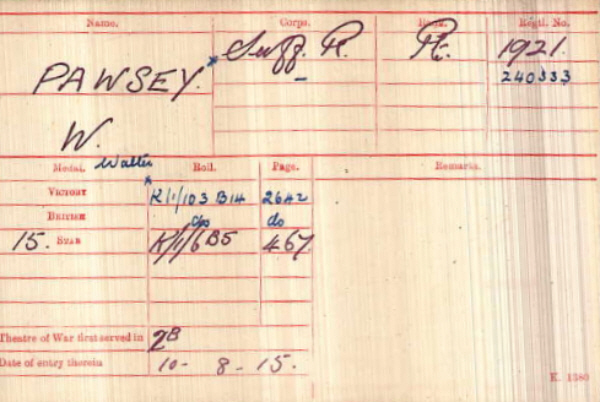 Name. Corps. Rank. Regtl. No.
PAWSEY. * Suff. R. Pte. 1921.
" 240333
W.
Walter
Medal. Roll. Page. Remarks.
VICTORY K/1/103 B14 2642
BRITISH do do
15. STAR K/1/6 B5 467.
Theatre of War first served in 2B
Date of entry therein 10 - 8 - 15.
K. 1380